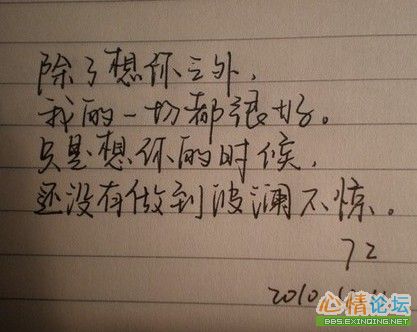 除了想你之外，
我的一切都很好。
只是想你的时候，
还没有做到波澜不惊。
72
2010
心情论坛
BBS.EXINQING.NET